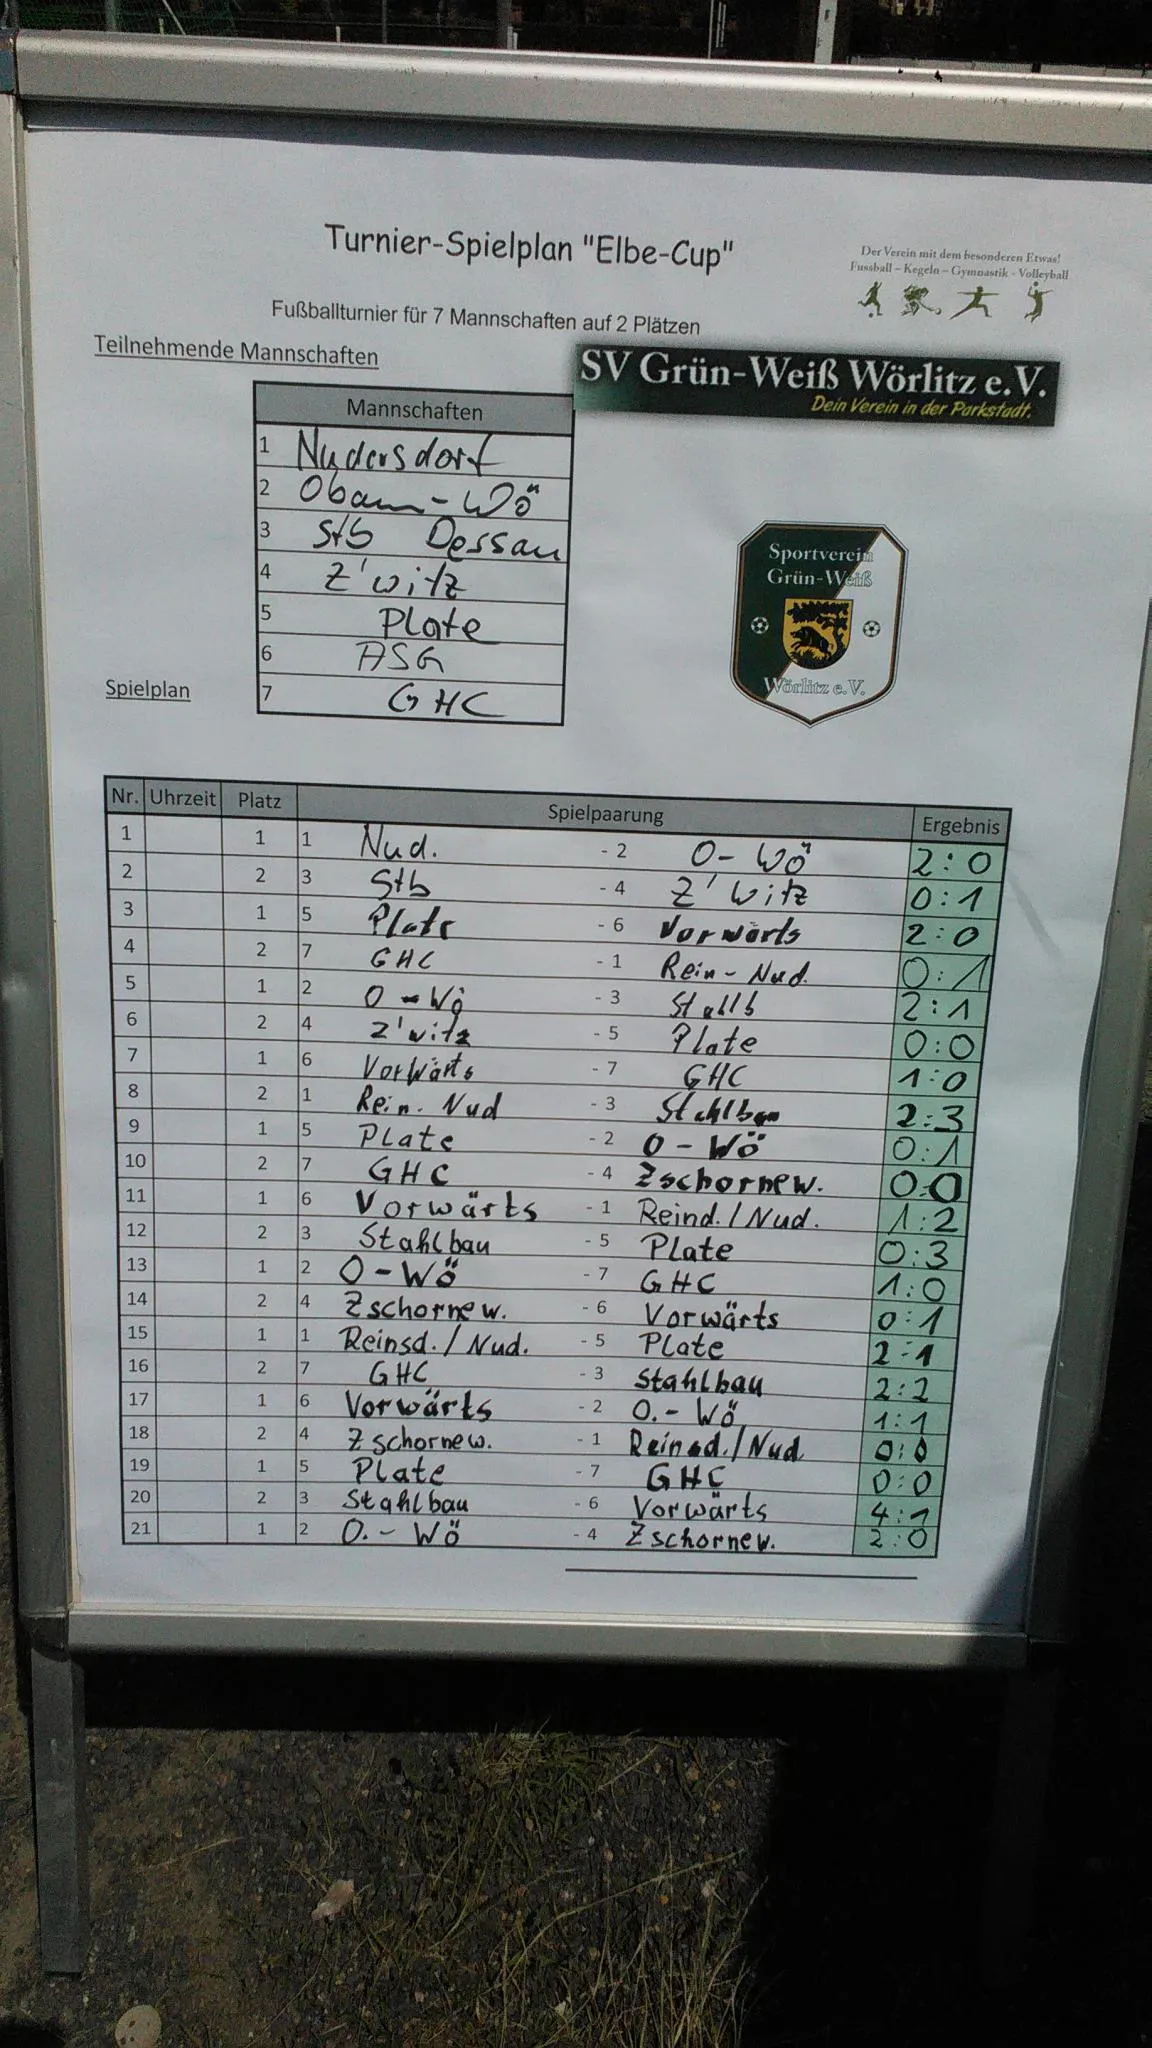 Turnier-Spielplan "Elbe-Cup"
Der Verein mit dem besonderen Etwas!
Fussball – Kegeln – Gymnastik - Volleyball
Fußballturnier für 7 Mannschaften auf 2 Plätzen
Teilnehmende Mannschaften
SV Grün-Weiß Wörlitz e.V.
Dein Verein in der Parkstadt.
Mannschaften
1 Nudersdorf
2 Obam-Wö
3 Stb Dessau
4 Z'witz
5 Plate
6 ASG
7 GHC
Sportverein
Grün-Weiß
Wörlitz e.V.
Spielplan
Nr. Uhrzeit Platz Spielpaarung Ergebnis
1 1 1 Nud. - 2 O-Wö 2:0
2 2 3 Stb - 4 Z'witz 0:1
3 1 5 Plate - 6 Vorwärts 2:0
4 2 7 GHC - 1 Rein-Nud. 0:1
5 1 2 O-Wö - 3 Stallb 2:1
6 2 4 Z'witz - 5 Plate 0:0
7 1 6 Vorwärts - 7 GHC 1:0
8 2 1 Rein. Nud - 3 Stahlbau 2:3
9 1 5 Plate - 2 O-Wö 0:1
10 2 7 GHC - 4 Zschornew. 0:0
11 1 6 Vorwärts - 1 Reind./Nud. 1:2
12 2 3 Stahlbau - 5 Plate 0:3
13 1 2 O-Wö - 7 GHC 1:0
14 2 4 Zschornew. - 6 Vorwärts 0:1
15 1 1 Reinsd./Nud. - 5 Plate 2:1
16 2 7 GHC - 3 Stahlbau 2:2
17 1 6 Vorwärts - 2 O.-Wö 1:1
18 2 4 Zschornew. - 1 Reinsd./Nud. 0:0
19 1 5 Plate - 7 GHC 0:0
20 2 3 Stahlbau - 6 Vorwärts 4:1
21 1 2 O.-Wö - 4 Zschornew. 2:0